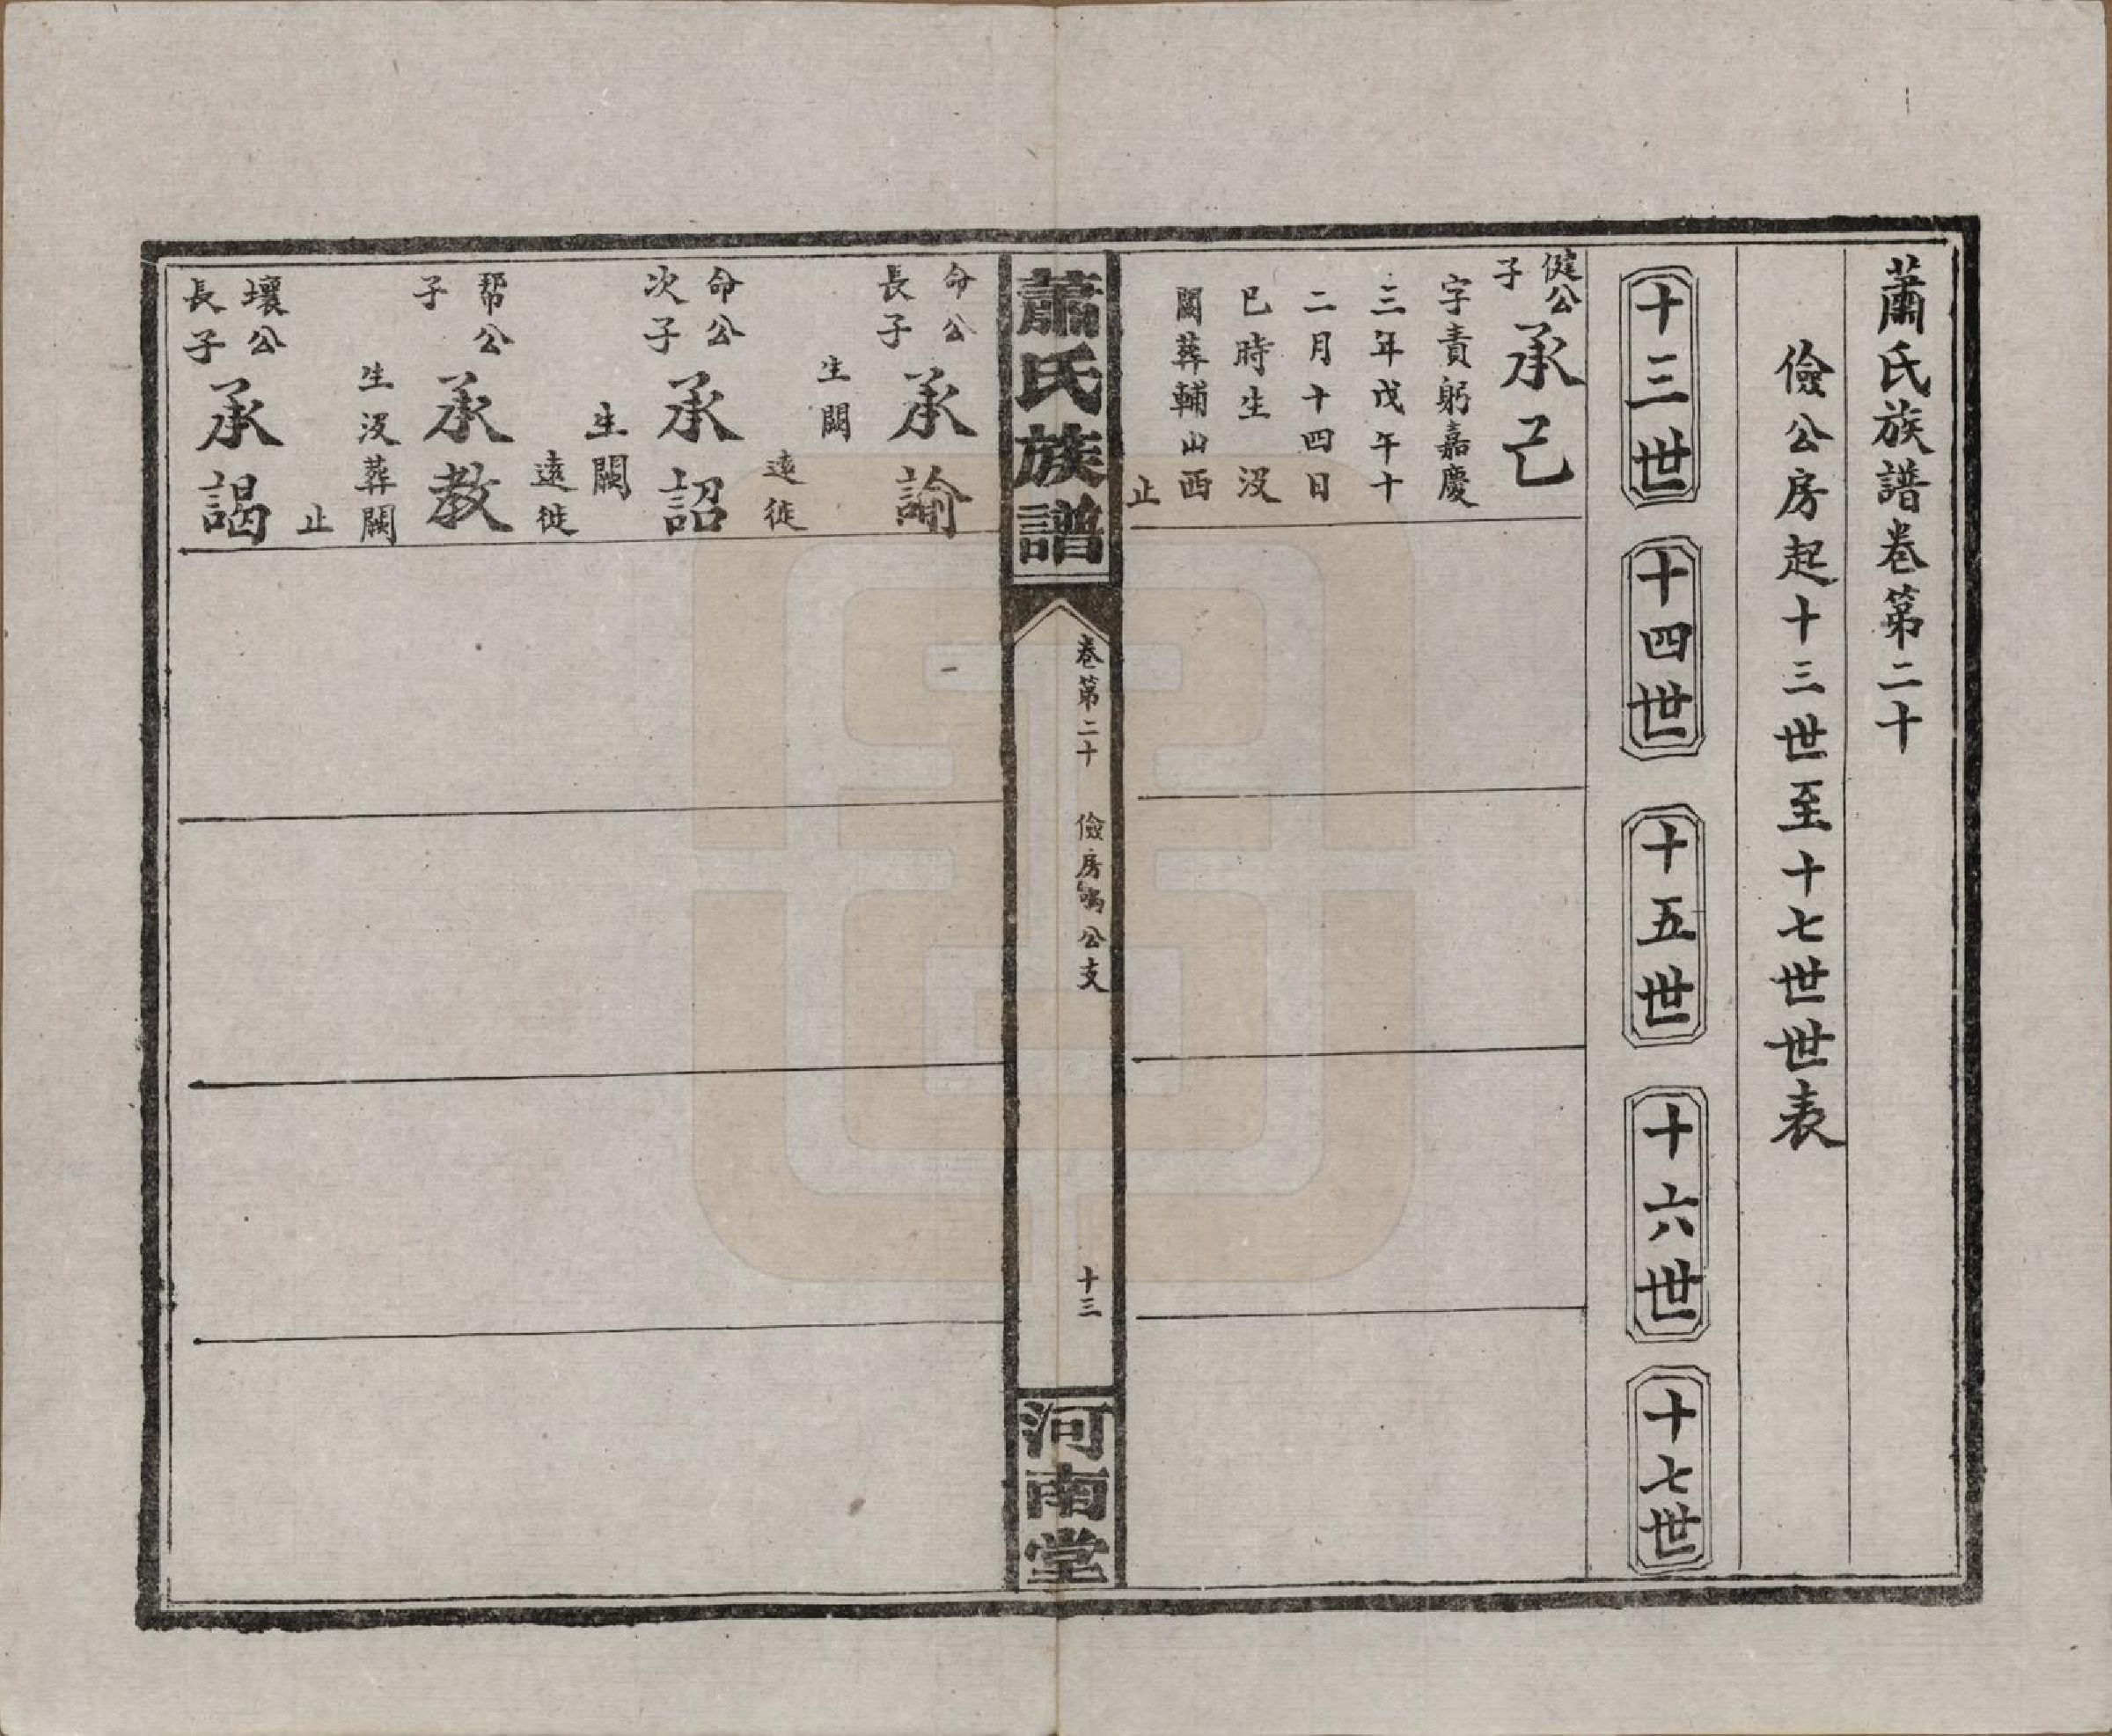 蕭氏族譜卷第二十
儉公房起十三世至十七世世表
十三世
十四世
十五世
十六世
十七世
健公
子
承己
字責躬嘉慶
三年戊午十
二月十四日
巳時生 沒
闕葬輔山西
止
蕭氏族譜
卷第二十 儉房 公支
十三
河南堂
命公
長子
承諭
生闕
遠徙
命公
次子
承詔
生闕
遠徙
幇公
子
承教
生沒葬闕
止
壤公
長子
承謁